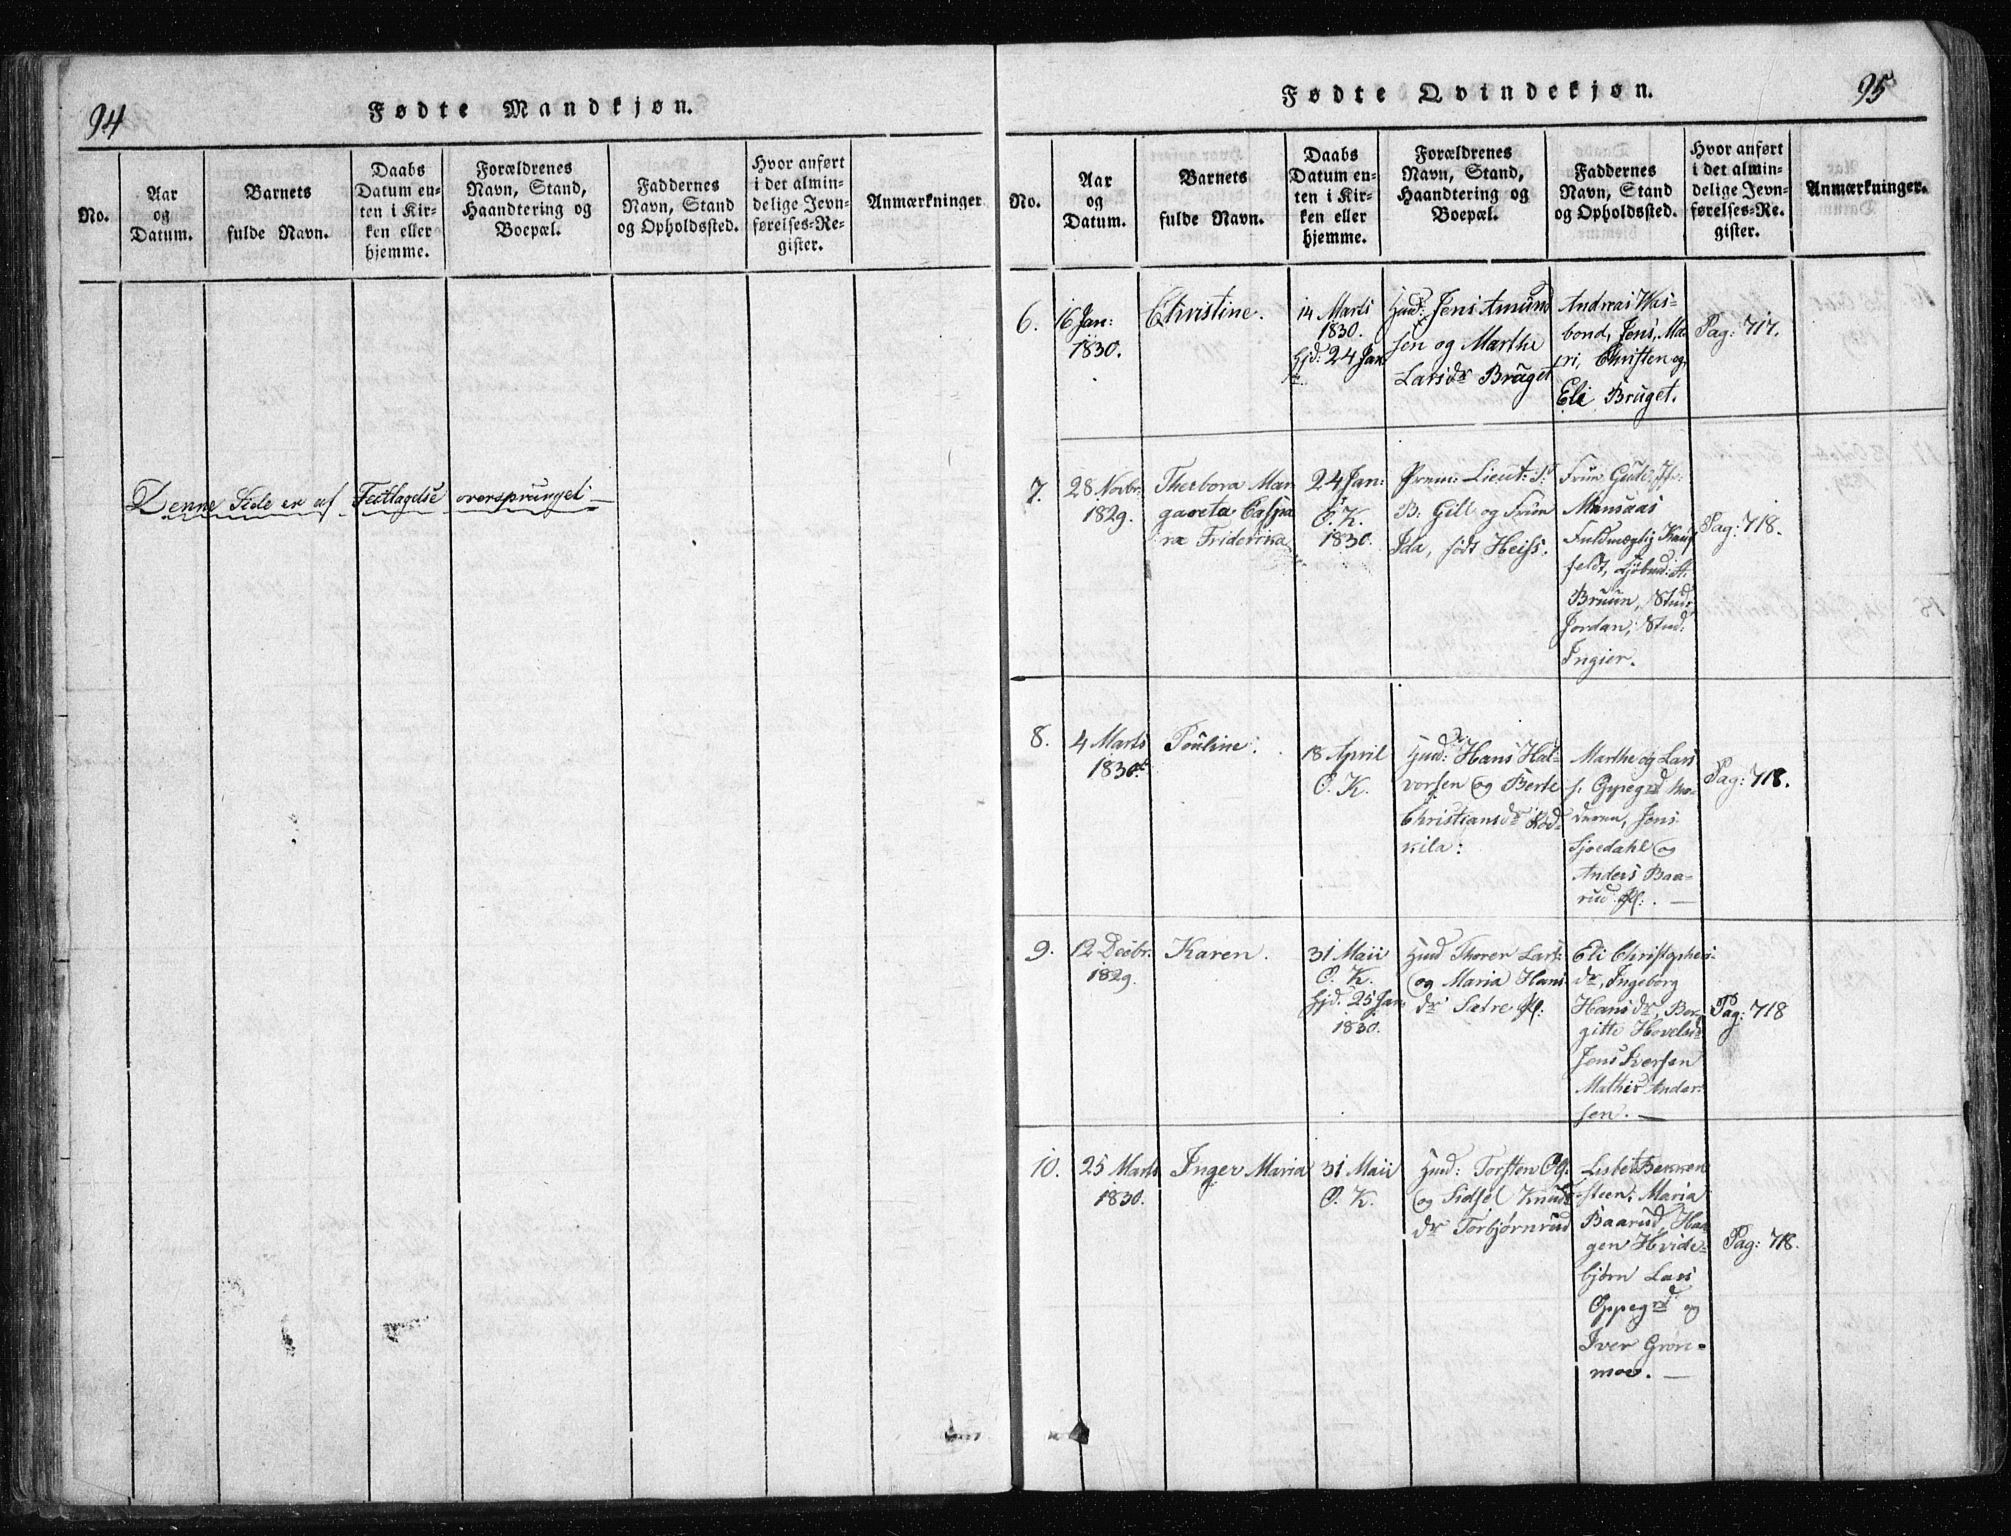 94
Fødte Mandkjøn.
No.
Aar
og
Datum.
Barnets
fulde Navn.
Daabs
Datum en-
ten i Kir-
ken eller
hjemme.
Forældrenes
Navn, Stand,
Haandtering og
Boepæl.
Faddernes
Navn, Stand
og Opholdssted.
Hvor anført
i det almin-
delige Jevn-
førelses-Re-
gister.
Anmærkninger
Denne Side er af Feiltagelse oversprunget
95
Fødte Qvindekjøn.
No.
Aar
og
Datum.
Barnets
fulde Navn.
Daabs
Datum en-
ten i Kir-
ken eller
hjemme.
Forældrenes
Navn, Stand,
Haandtering og
Boepæl.
Faddernes
Navn, Stand
og Opholdssted.
Hvor anført
i det almin-
delige Jevn-
førelses-Re-
gister.
Anmærkninger.
6.
16 Jan:
1830.
Christine.
14 Marts
1830.
Hjd: 24 Jan
Huusmd: Jens Amund
sen og Marthe
Larsdr Bruget
Andreas Was-
bond, Jens, Ma-
ri, Christen og
Eli Bruget.
Pag: 717.
7.
28 Novbr.
1829.
Therbora Mar
gareta Caspa
ra Friderika
24 Jan:
O. K.
1830.
Prem: Lieut: S:
B. Gill og Frue
Ida, født Heiss.
Frue Gude,
Munsaas
Fuldmægtig
feldt, Kjøbmd: A.
Bruun, Stud:
Jordan, Stud:
Ingier.
Pag: 718.
8.
4 Marts
1830
Pouline.
18 April
O. K.
Hans Hal-
vorsen og Berte
Christiansdr Kod-
kila:
Marthe og Lars
s. Oppegrd Mo-
deren, Jens
Sjødahl og
Anders Baa-
rud
Pag: 718.
9.
12 Decbr.
1829.
Karen.
31 Maii
O. K.
Hjd. 25 Jan
1830.
Thorer Lars:
og Maria Hans
dr Sætre
Eli Christophers-
dr, Ingeborg
Hansdr, Bor-
gitte Hovelsdr
Jens Iversen
Mathis Ander-
sen.
Pag: 718
10.
25 Marts
1830.
Inger Maria
31 Maii
O. K.
Torsten Ol:
og Sidsel Knuds
dr Torbjørnrud
Lisbet Bekken
steen, Maria
Baarud, Haa
gen Hvide-
bjørn Lars
Oppegrd og
Iver Grøn-
moe.
Pag: 718.